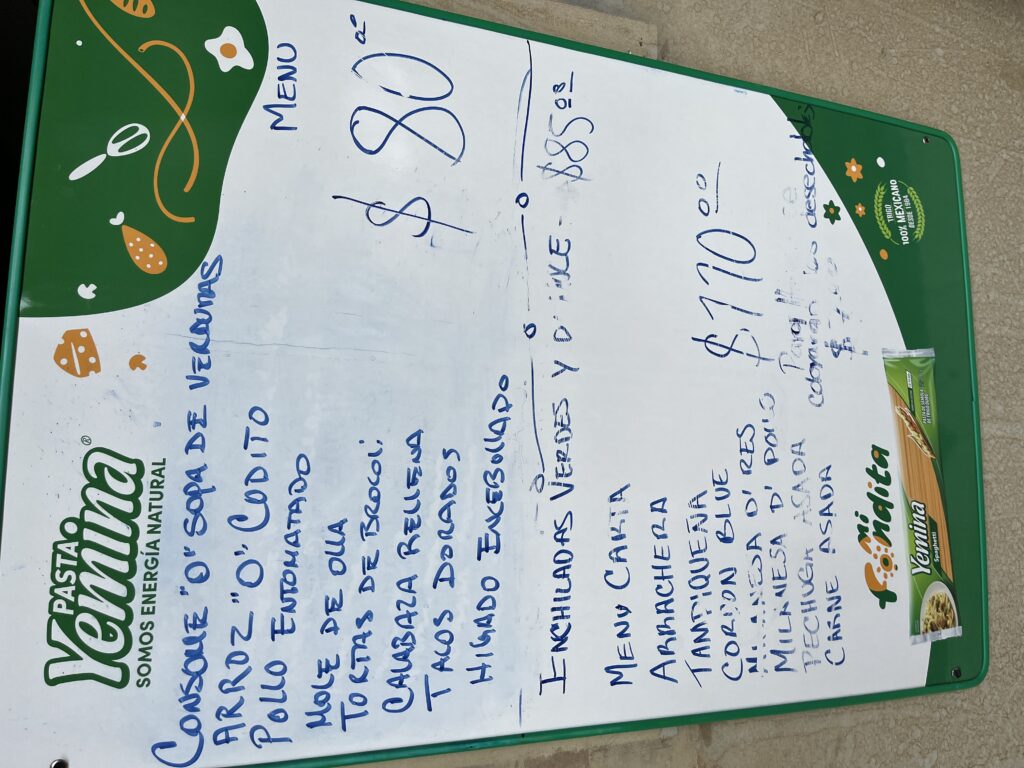 PASTA
Yemina®
SOMOS ENERGÍA NATURAL
CONSOME "O" SOPA DE VERDURAS
ARROZ "O" CODITO
POLLO ENTOMATADO
MENU
MOLE DE OLLA
TORTAS DE BROCOLI
$80.00
CALABAZA RELLENA
TACOS DORADOS
HIGADO ENCEBOLLADO
ENCHILADAS VERDES Y D' MOLE - $85.00
MENU CARTA
ARRACHERA
TAMPIQUEÑA
CORDON BLUE
$110.00
MILANESA D' RES
MILANESA D' POLLO
PECHUGA ASADA
Para
cobraran los desechables
CARNE ASADA
mi
fondita
TRIGO
100% MEXICANO
DESDE 1964
Yemina
Spaghetti
PASTA DE SÉMOLA
DE TRIGO DURO